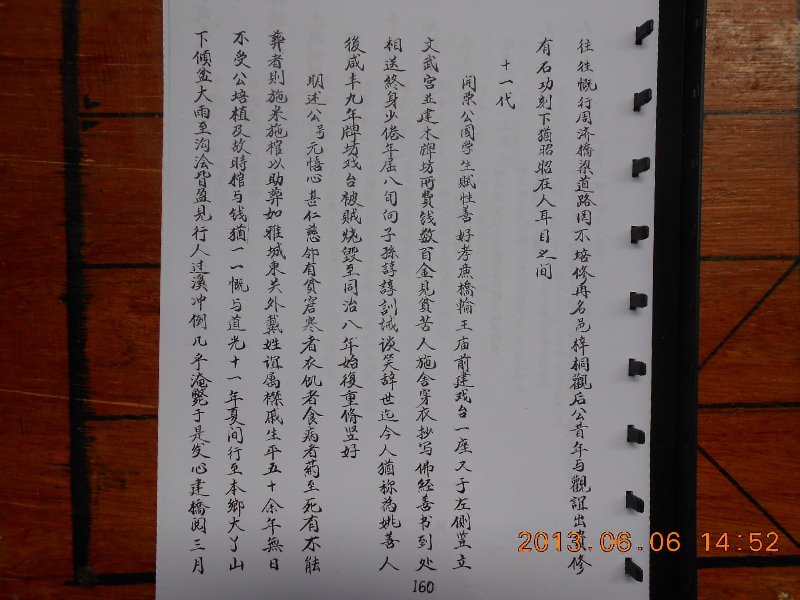 往往慨行周济橋梁道路罔不培修再名邑梓桐觀后公昔年与觀誼出資修
有石功刻下猶昭昭在人耳目之間
十一代
開荣公國学生賦性善好孝廉橋輪王庙前建戏台一座又于左側竪立
文武宫並建木牌坊所費钱数百金見貧苦人施舍穿衣抄写佛经善书到处
相送終身少倦年届八旬向子孫諄諄訓诫谈笑辞世迄今人猶称為姚善人
後咸丰九年牌坊戏台被贼烧毀至同治八年始復重脩竖好
明述公号元悟心甚仁慈邻有貧窘寒者衣飢者食病者葯至死有不能
葬者則施米施棺以助葬如雅城東关外戴姓誼属襟戚生平五十余年無日
不受公培植及故時棺与钱猶一一慨与道光十一年夏间行至本鄉大丫山
下傾盆大雨至沟浍皆盈見行人过溪冲倒几乎淹斃于是发心建橋阅三月
160
2013.06.06 14:52